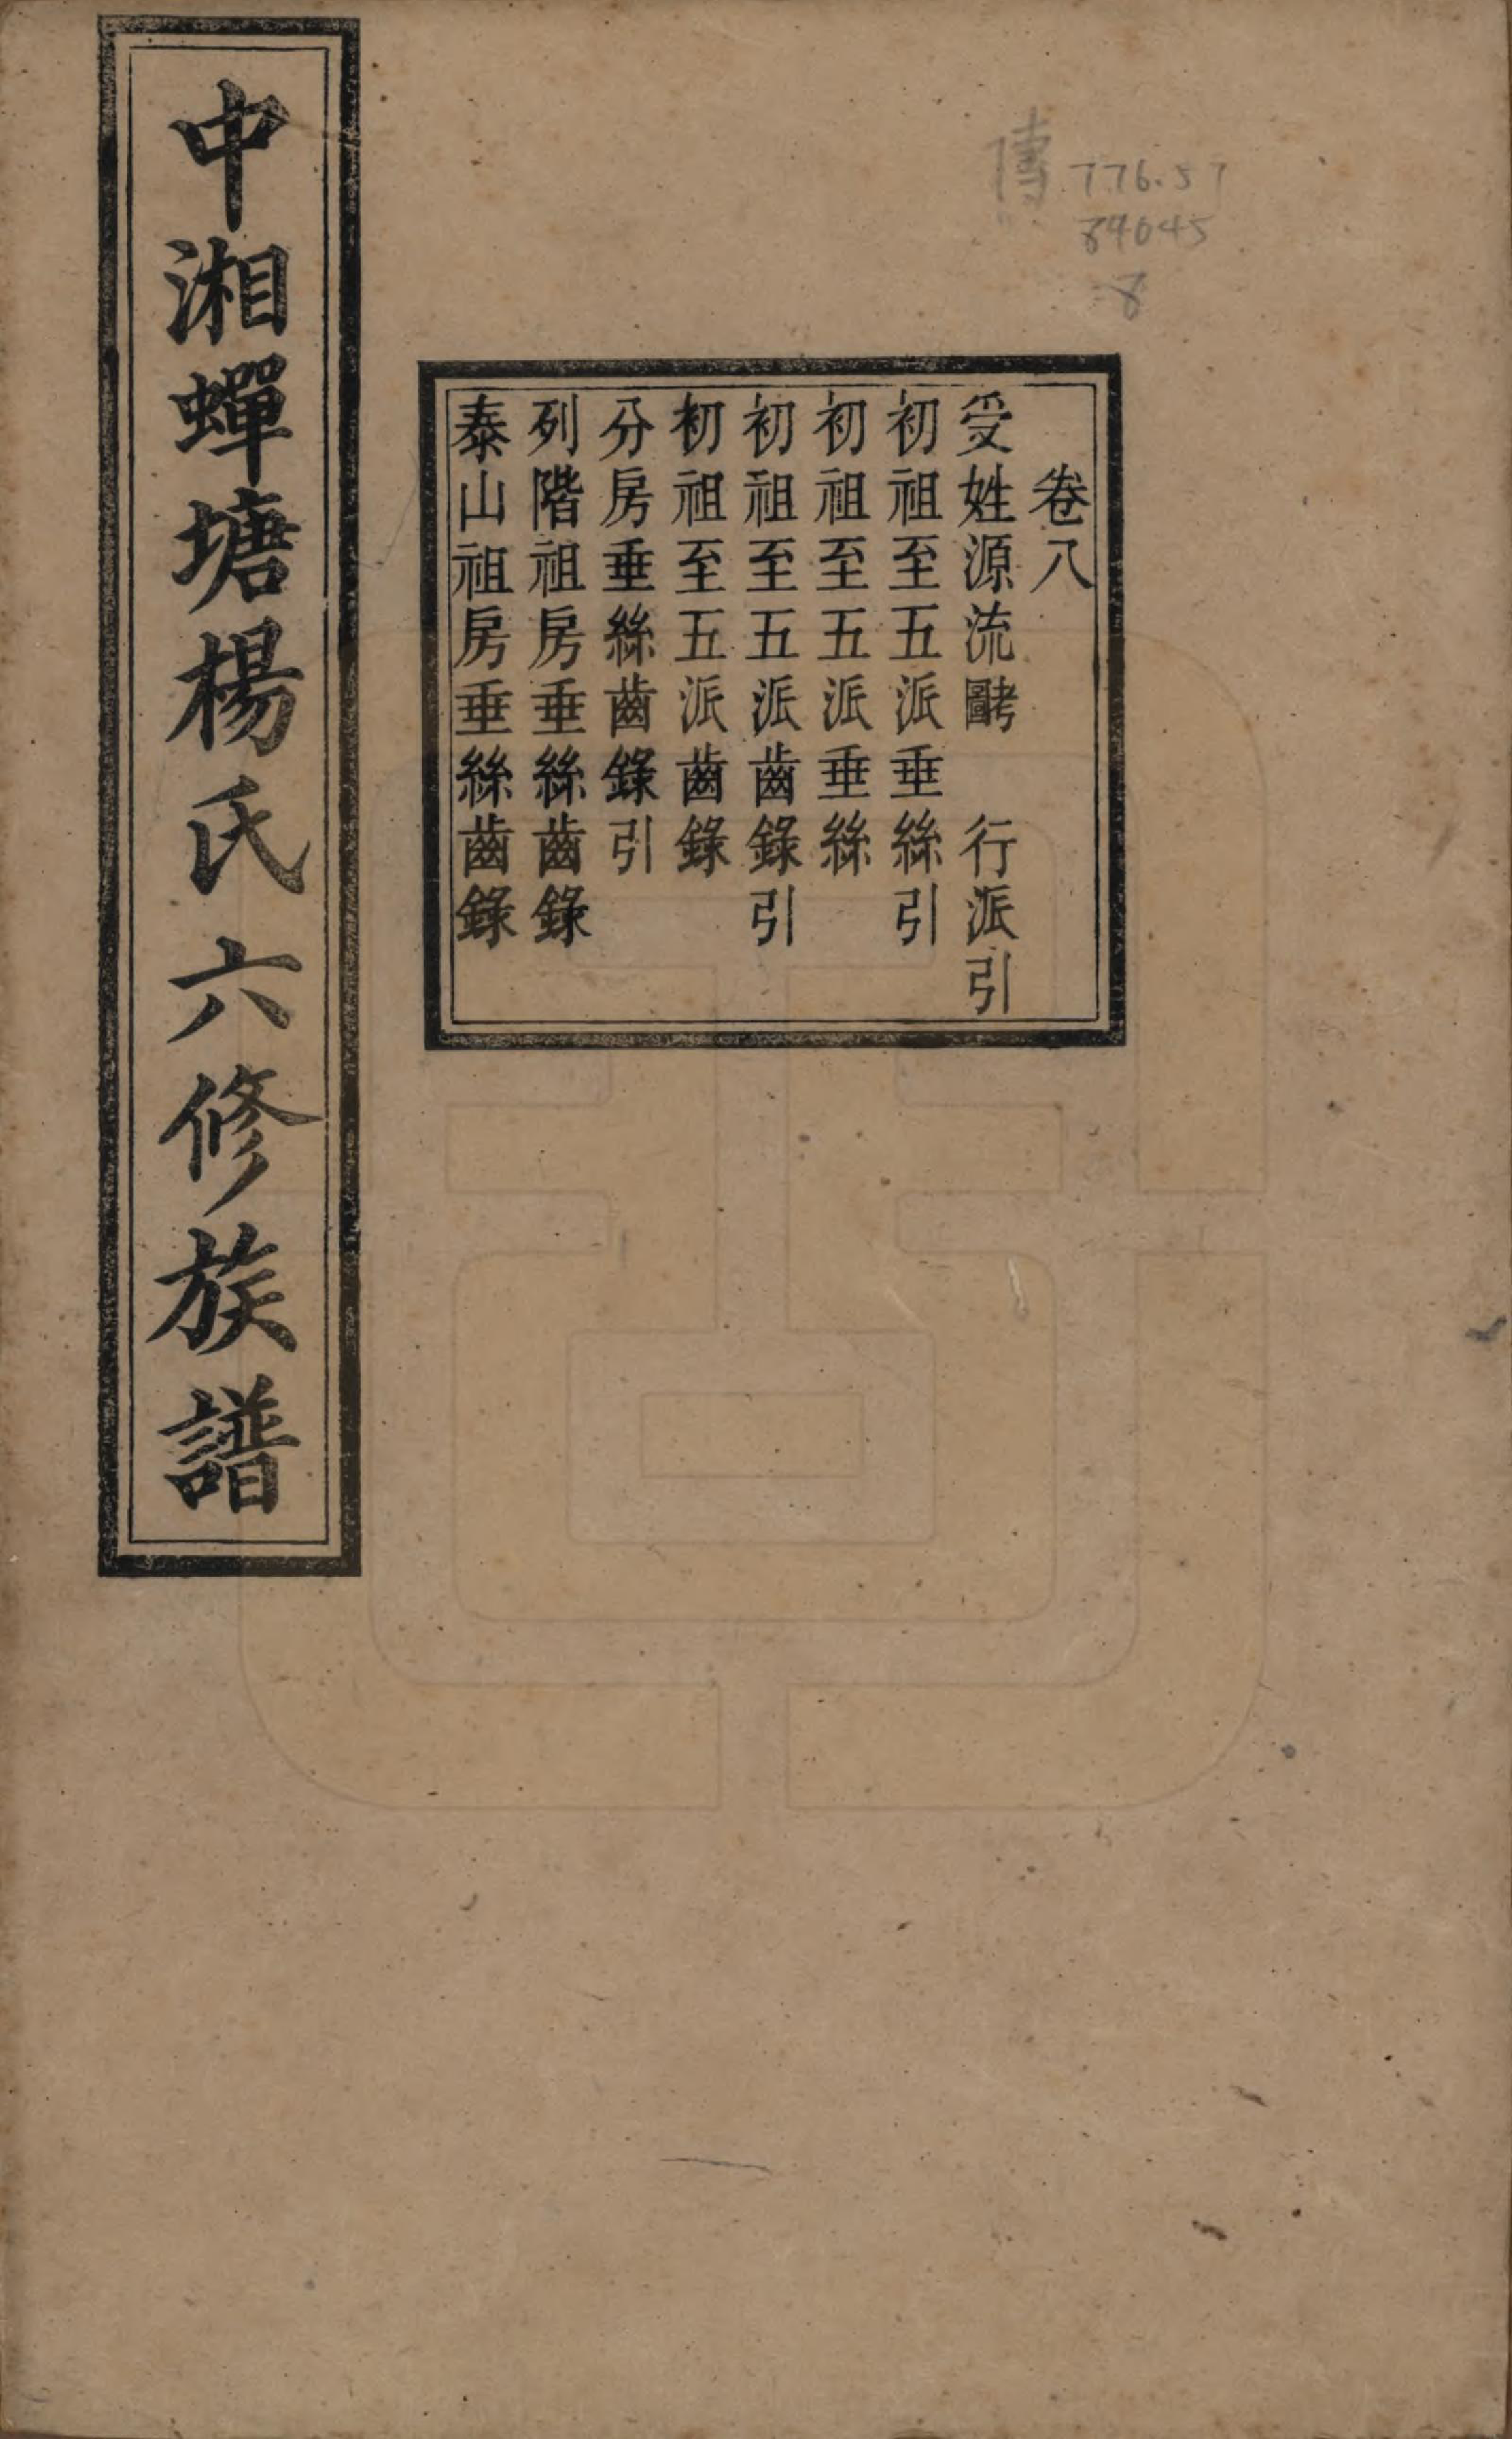 傳 776.57
84045
:8
卷八
受姓源流圖考 行派引
初祖至五派垂絲引
初祖至五派垂絲
初祖至五派齒錄引
初祖至五派齒錄
分房垂絲齒錄引
列階祖房垂絲齒錄
泰山祖房垂絲齒錄
中湘蟬塘楊氏六修族譜